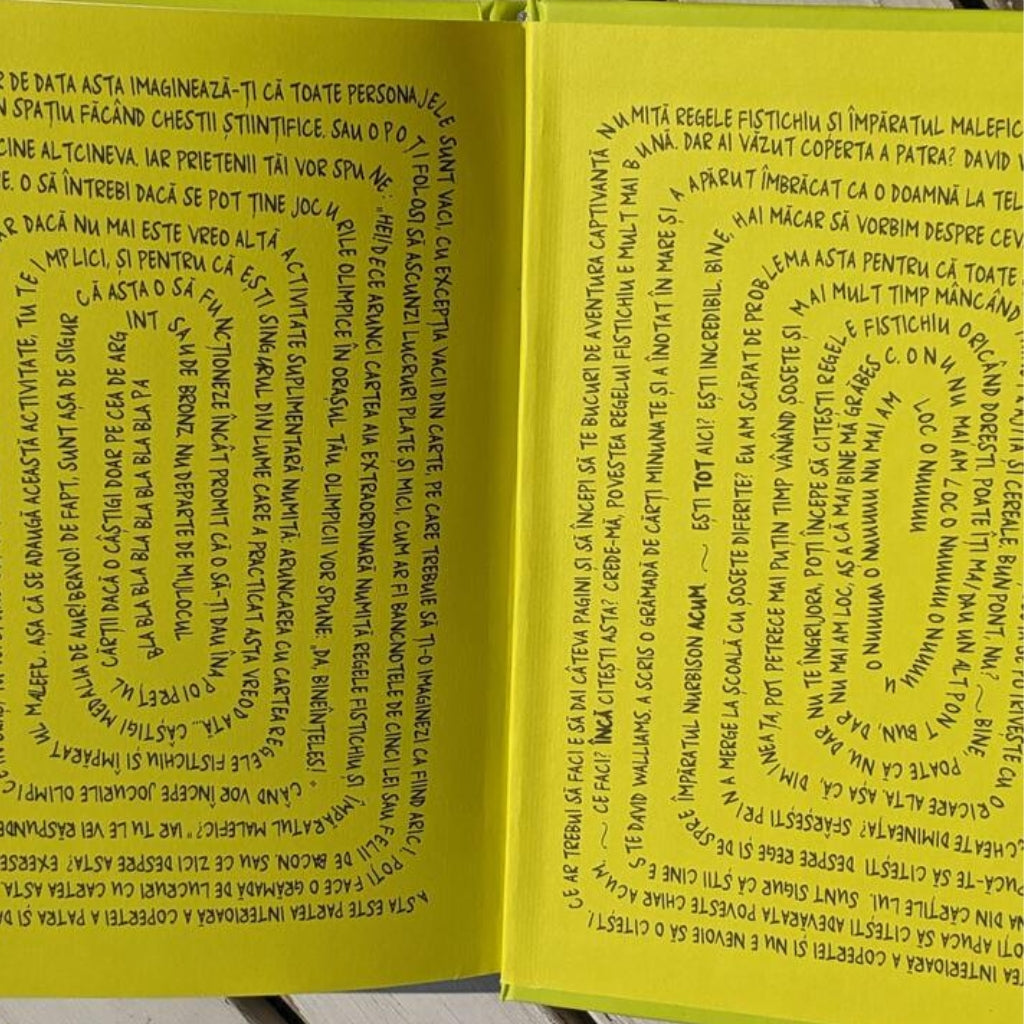 R DE DATA ASTA IMAGINEAZĂ-ȚI CĂ TOATE PERSONAJELE SUNT VACI, CU EXCEPȚIA VACII DIN CARTE, PE CARE TREBUIE SĂ ȚI-O IMAGINEZI CA FIIND ARICI
N SPAȚIU FĂCÂND CHESTII ȘTIINȚIFICE. SAU O POȚI FOLOSI SĂ ASCUNZI LUCRURI PLATE ȘI MICI, CUM AR FI BANCNOTELE DE CINCI LEI SAU FELII DE BACON. SAU CE ZICI DESPRE ASTA? EXERSE
CINE ALTCINEVA. IAR PRIETENII TĂI VOR SPUNE: „HEI! DE CE ARUNCI CARTEA AIA EXTRAORDINARĂ NUMITĂ REGELE FISTICHIU ȘI ÎMPĂRATUL MALEFIC?" IAR TU LE VEI RĂSPUNDE
PE. O SĂ ÎNTREBI DACĂ SE POT ȚINE JOCURILE OLIMPICE ÎN ORAȘUL TĂU. OLIMPICII VOR SPUNE: „DA, BINEÎNȚELES!"
CÂND VOR ÎNCEPE JOCURILE OLIMPIC
AR DACĂ NU MAI ESTE VREO ALTĂ ACTIVITATE SUPLIMENTARĂ NUMITĂ: ARUNCAREA CU CARTEA REGELE FISTICHIU ȘI ÎMPĂRATUL MALEFIC. AȘA CĂ SE ADAUGĂ ACEASTĂ ACTIVITATE, TU TE IMPLICI, ȘI PENTRU CĂ EȘTI SINGURUL DIN LUME CARE A PRACTICAT ASTA VREODATĂ... CÂȘTIGI MEDALIA DE AUR! BRAVO! DE FAPT, SUNT AȘA DE SIGUR CĂ ASTA O SĂ FUNCȚIONEZE ÎNCÂT PROMIT CĂ O SĂ-ȚI DAU ÎNAPOI PREȚUL CĂRȚII DACĂ O CÂȘTIGI DOAR PE CEA DE ARGINT SAU DE BRONZ. NU DEPARTE DE MIJLOCUL
BLA BLA BLA BLA BLA BLA BLA PA
POȚI FACE O GRĂMADĂ DE LUCRURI CU CARTEA ASTA.
ASTA ESTE PARTEA INTERIOARĂ A COPERTEI A PATRA ȘI DA
TEA INTERIOARĂ A COPERTEI ȘI NU E NEVOIE SĂ O CITEȘTI!
CE AR TREBUI SĂ FACI E SĂ DAI CÂTEVA PAGINI ȘI SĂ ÎNCEPI SĂ TE BUCURI DE AVENTURA CAPTIVANTĂ NUMITĂ REGELE FISTICHIU ȘI ÎMPĂRATUL MALEFIC
OȚI APUCA SĂ CITEȘTI ADEVĂRATA POVESTE CHIAR ACUM. ~ CE FACI? ÎNCĂ CITEȘTI ASTA? CREDE-MĂ, POVESTEA REGELUI FISTICHIU E MULT MAI BUNĂ. DAR AI VĂZUT COPERTA A PATRA? DAVID W
NA DIN CĂRȚILE LUI. SUNT SIGUR CĂ ȘTII CINE ESTE DAVID WILLIAMS, A SCRIS O GRĂMADĂ DE CĂRȚI MINUNATE ȘI A ÎNOTAT ÎN MARE ȘI A APĂRUT ÎMBRĂCAT CA O DOAMNĂ LA TEL
PUCĂ-TE SĂ CITEȘTI DESPRE REGE ȘI DESPRE ÎMPĂRATUL NURBISON ACUM. ~ EȘTI TOT AICI? EȘTI INCREDIBIL. BINE, HAI MĂCAR SĂ VORBIM DESPRE CEV
RECHEATE DIMINEAȚA? SFÂRȘEȘTI PRIN A MERGE LA ȘCOALĂ CU ȘOSETE DIFERITE? EU AM SCĂPAT DE PROBLEMA ASTA PENTRU CĂ TOATE
SE POTRIVEȘTE CU ORICARE ALTA. AȘA CĂ, DIMINEAȚA, POT PETRECE MAI PUȚIN TIMP VÂNÂND ȘOSETE ȘI MAI MULT TIMP MÂNCÂND
CEREALE. BUN PONT, NU? ~ BINE, POATE CĂ NU, DAR NU TE ÎNGRIJORA. POȚI ÎNCEPE SĂ CITEȘTI REGELE FISTICHIU ORICÂND DOREȘTI. POATE ÎȚI MAI DAU UN ALT PONT BUN, DAR NU MAI AM LOC, AȘA CĂ MAI BINE MĂ GRĂBESC. O NU NU MAI AM LOC O NUUUUU O NUUUUU O NUUUUU O NUUUUU NU MAI AM LOC O NUUUUU